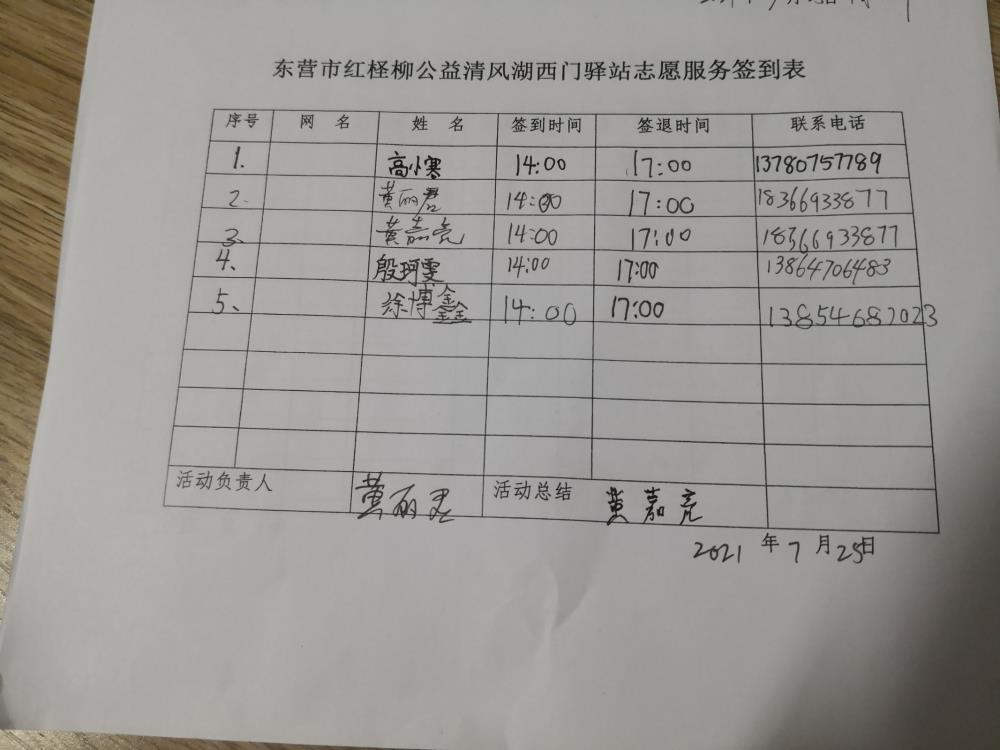 东营市红柽柳公益清风湖西门驿站志愿服务签到表
序号 网 名 姓 名 签到时间 签退时间 联系电话
1. 高小寒 14:00 17:00 13780757789
2. 黄丽君 14:00 17:00 18366933877
3、 黄嘉亮 14:00 17:00 18366933877
4、 殷珂雯 14:00 17:00 13864706483
5、 徐博鑫 14:00 17:00 13854687023
活动负责人 黄丽君 活动总结 黄嘉亮
2021 年 7 月 25日